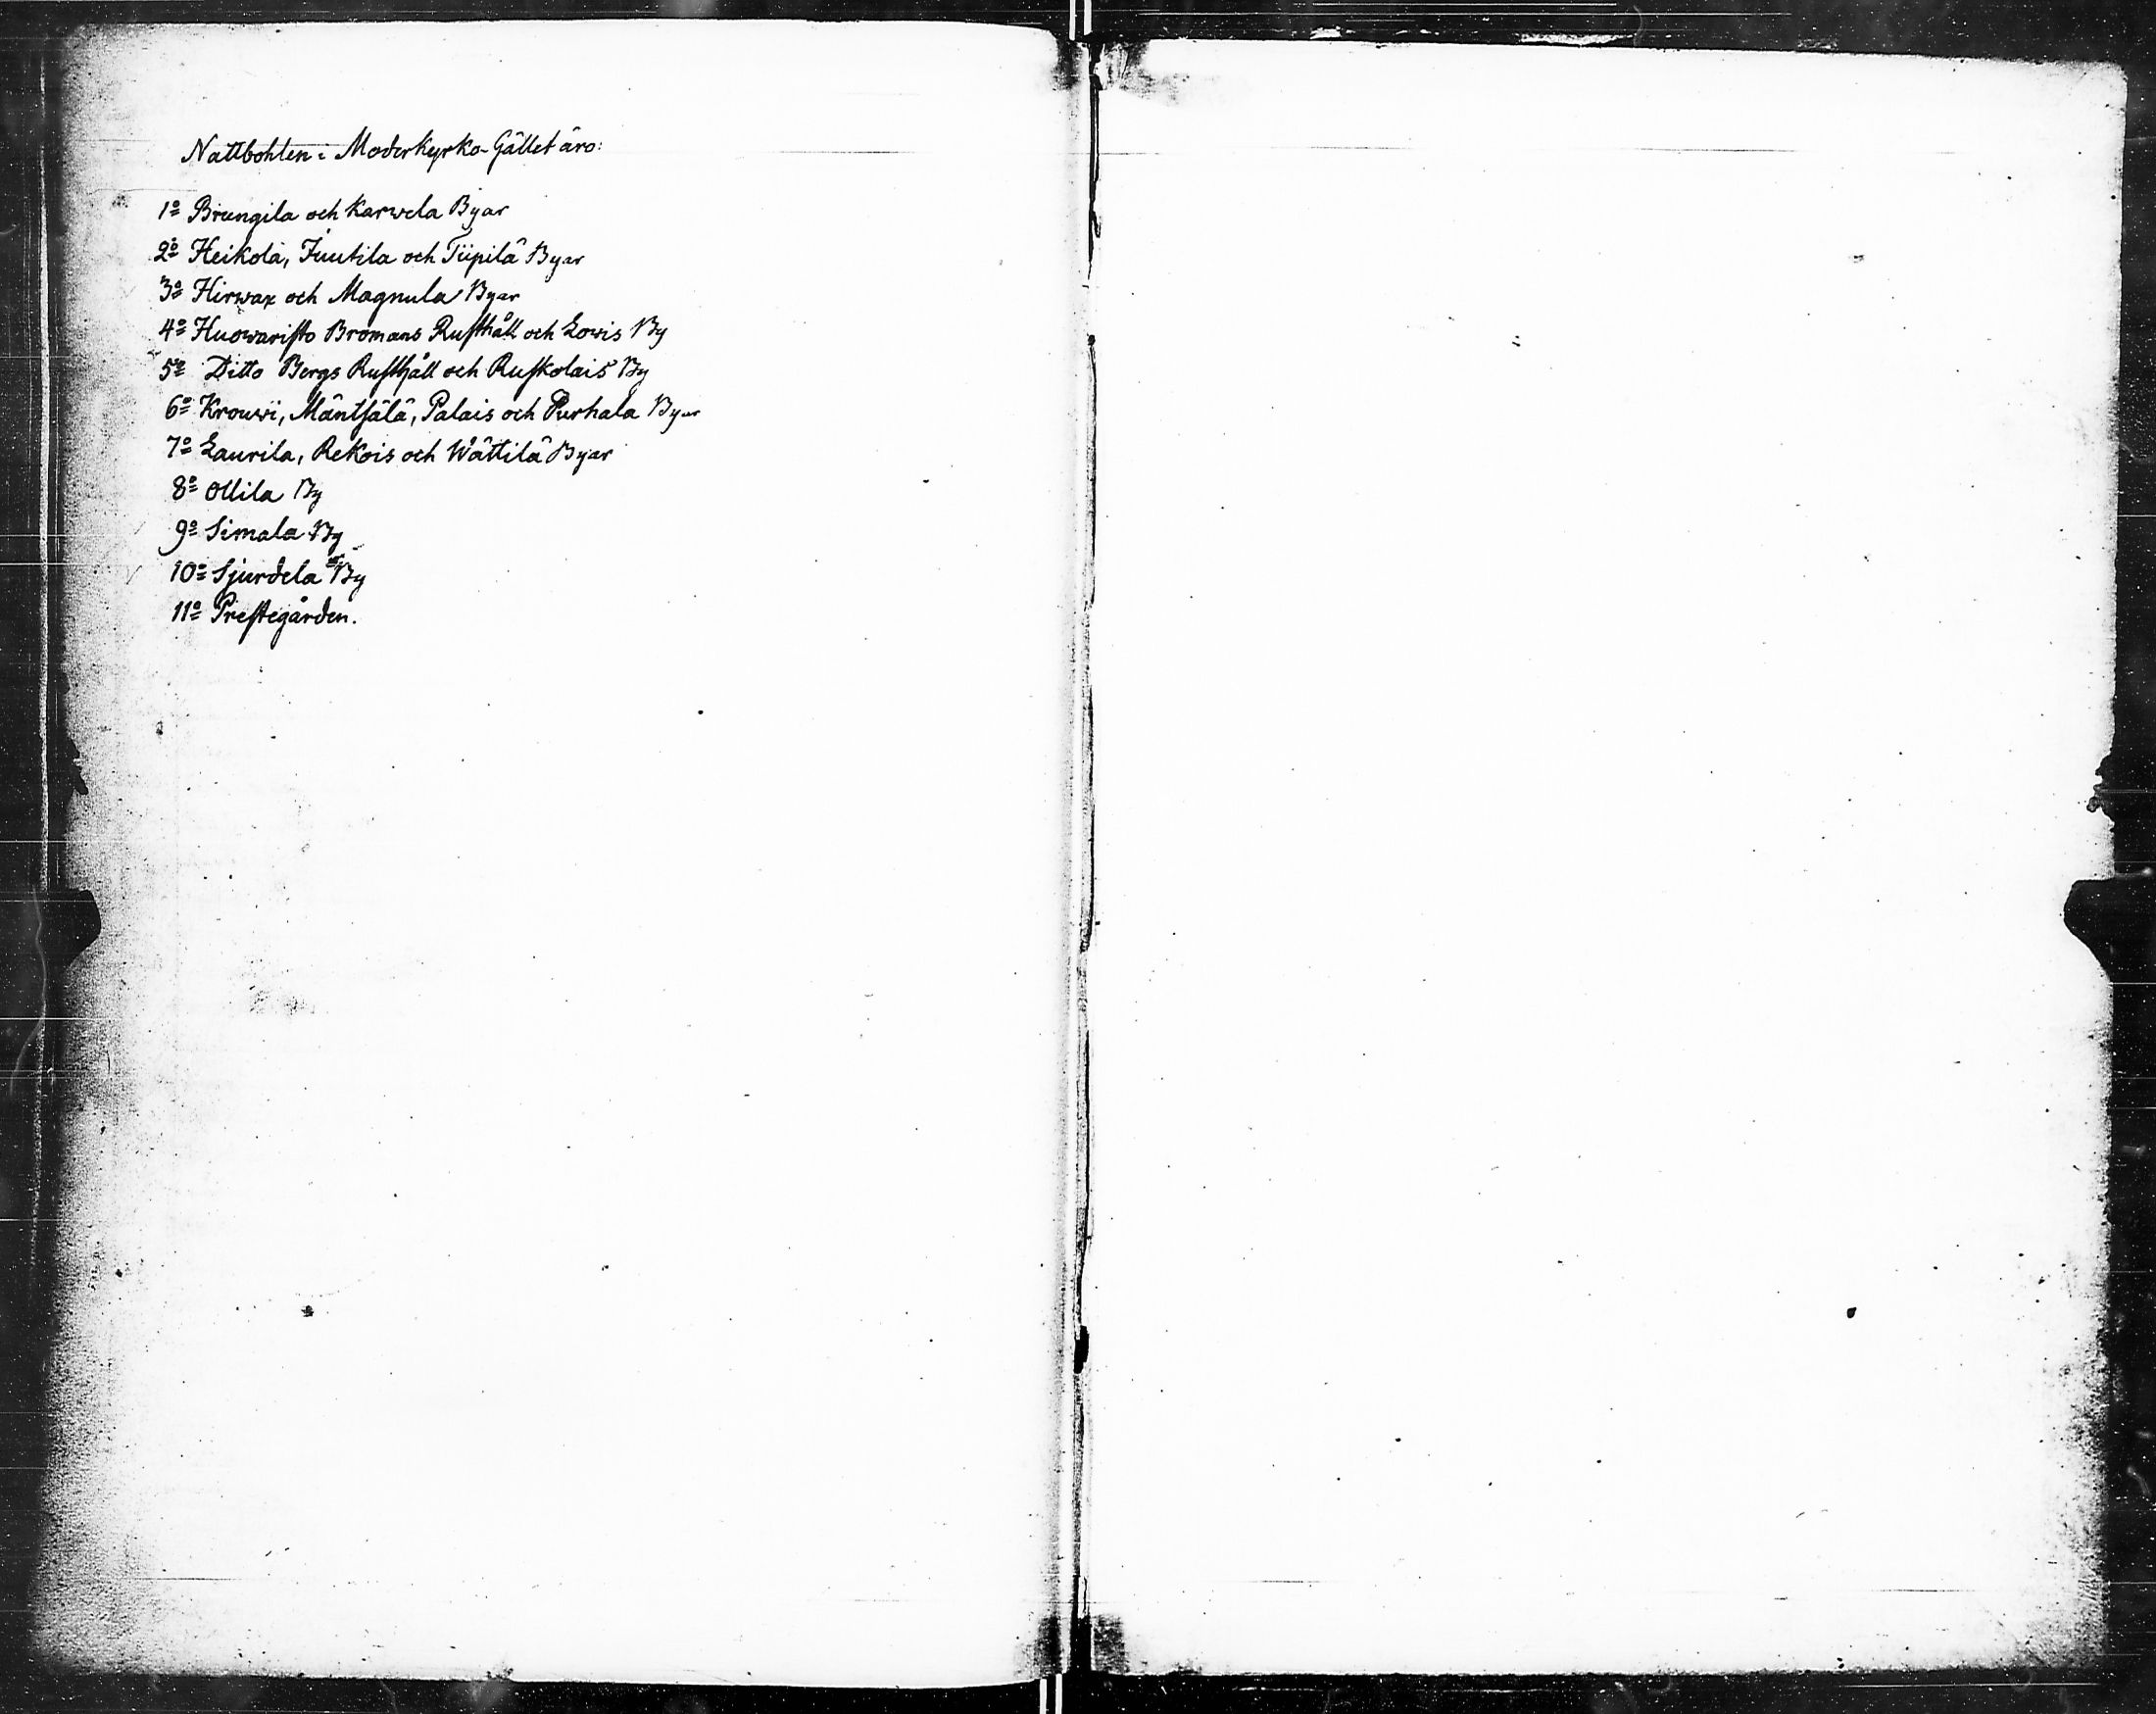 Nattbohlen i Moderkyrko-Gället äro:
1º Brungila och Karwela Byar
2º Heikola, Juutila och Tiipilä Byar
3º Hirwax och Magnula Byar
4º Huowaristo Bromans Rusthåll och Lowis By
5º Ditto Bergs Rusthåll och Ruskolais By
6º Krouwi, Mäntsälä, Palais och Purhala Byar
7º Laurila, Rekois och Wättilä Byar
8º Ollila By
9º Simala By
10º Sjurdela By
11º Prestegården.